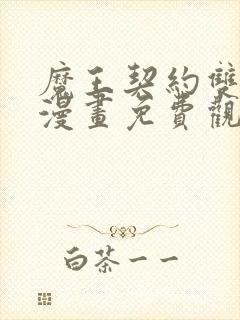 魔王契約雙
漫畫免費觀
白茶一一